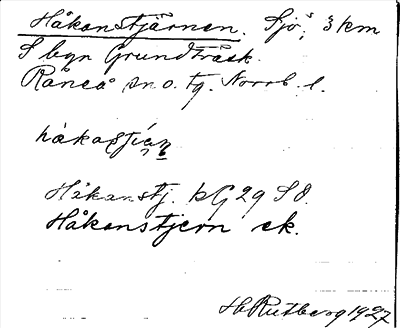 Håkanstjärnen. Sjö, 3 km
S byn Grundträsk.
Råneå sn o. tg. Norrb. l.
Håkanstj. kG 29 S O.
Håkanstjern ek.
H Rutberg 1927